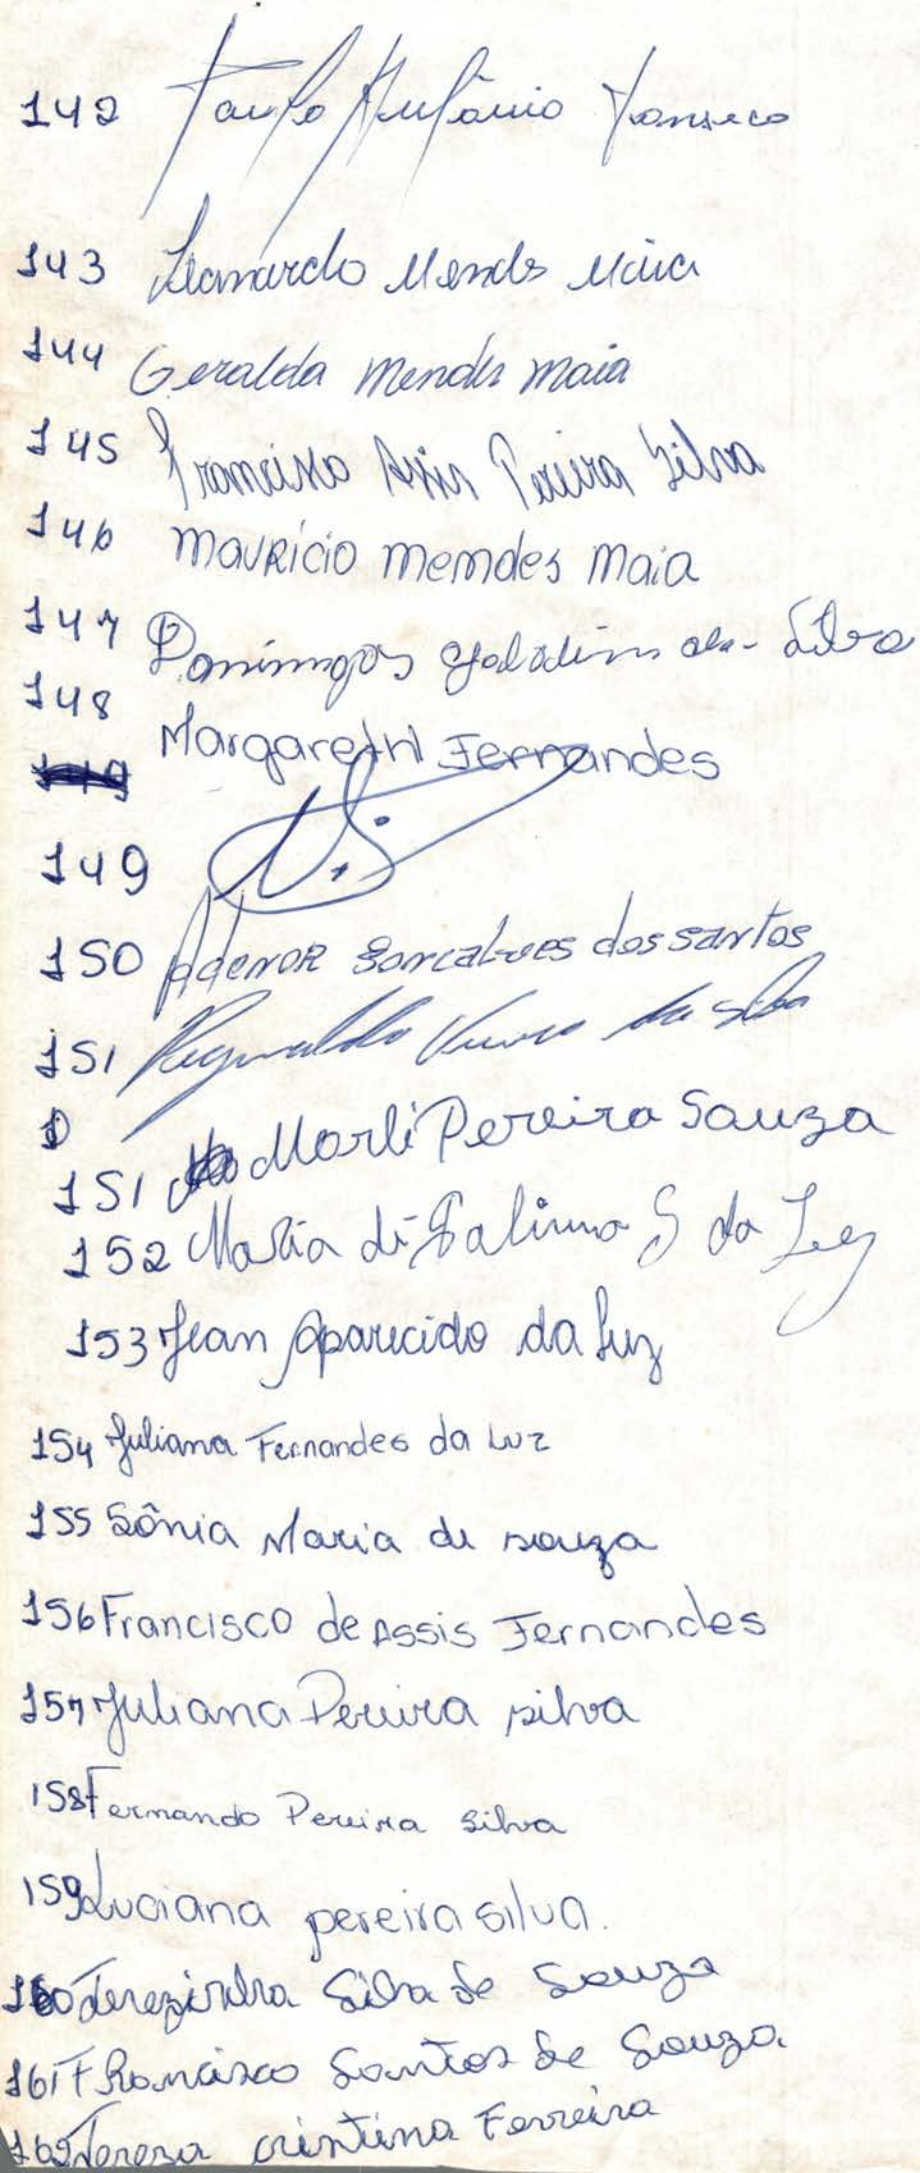 142 Paulo Antônio Fonseca
143 Leonardo Mendes Maia
144 Geralda Mendes Maia
145 Francisco Assis Pereira Silva
146 Mauricio Memdes Maia
147 Domingos da Silva
148 Margareth Fernandes
149
150 Adenor Goncalves dos santos
151 Reginaldo da Silva
151 Marli Pereira Souza
152 Maria di S da Luz
153 Jean Aparecido da Luz
154 Juliana Fernandes da Luz
155 Sônia Maria de souza
156 Francisco de Assis Fernandes
157 Juliana Pereira silva
158 Fernando Pereira silva
159 Luciana pereira silva.
160 Terezinha Silva de Souza
161 Francisco Santos de Souza
162 Tereza cristina Ferreira